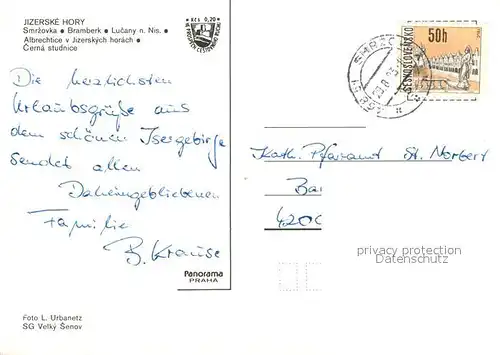 JIZERSKÉ HORY
Smržovka ● Bramberk ● Lučany n. Nis. ●
Albrechtice v Jizerských horách ●
Černá studnice
Kčs 0,20
50h
ČESKOSLOVENSKO
Die herzlichsten
Urlaubsgrüße aus
dem schönen Isergebirge
sendet allen
Daheimgebliebenen
Familie
B. Krause
Kath. Pfaramt St. Norbert
Bar
420C
privacy protection
Datenschutz
Panorama
PRAHA
Foto L. Urbanetz
SG Velký Šenov